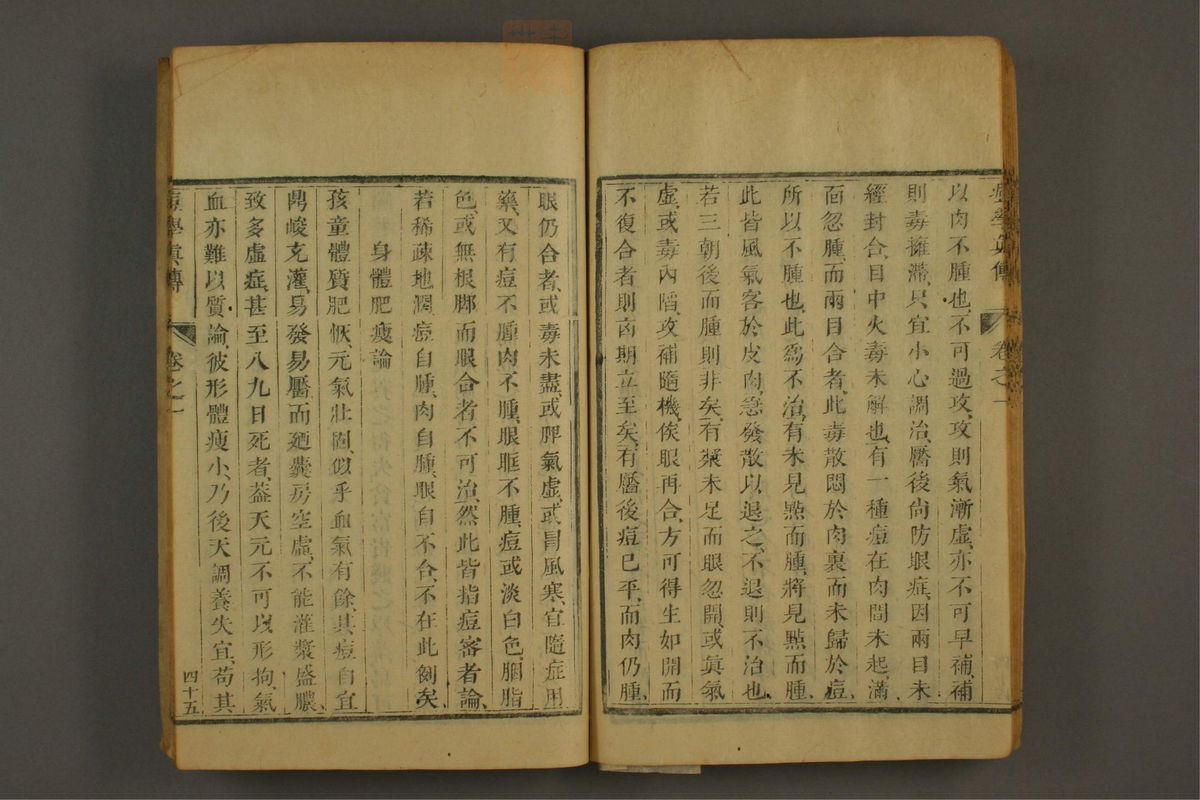 痘學眞傳 卷之一
以肉不腫也、不可過攻、攻則氣漸虛、亦不可早補、補
則毒擁滯、只宜小心調治、靨後尙防眼症、因兩目未
經封合、目中火毒未解也、有一種痘在肉間未起、滿
面忽腫、而兩目合者、此毒散悶於肉裏而未歸於痘
所以不腫也、此爲不治、有未見點而腫、將見點而腫
此皆風氣客於皮肉、急發散以退之、不退則不治也
若三朝後而腫則非矣、有漿未足而眼忽開、或眞氣
虛、或毒內陷、攻補隨機、俟眼再合、方可得生、如開而
不復合者、則凶期立至矣、有靨後痘已平、而肉仍腫、
眼仍合者、或毒未盡、或脾氣虛、或冒風寒、宜隨症用
藥、又有痘不腫、肉不腫、眼眶不腫、痘或淡白色、胭脂
色、或無根脚而眼合者、不可治、然此皆指痘密者論、
若稀疎地濶、痘自腫、肉自腫、眼自不合、不在此例矣
身體肥瘦論
孩童體質肥恢、元氣壯固、似乎血氣有餘、其痘自宜
鬆峻充灌、易發易靨、而廼囊房空虛、不能灌漿盛膿、
致多虛症、甚至八九日死者、蓋天元不可以形拘、氣
血亦難以質論、彼形體瘦小、乃後天調養失宜、苟其
痘學眞傳 卷之一 四十五